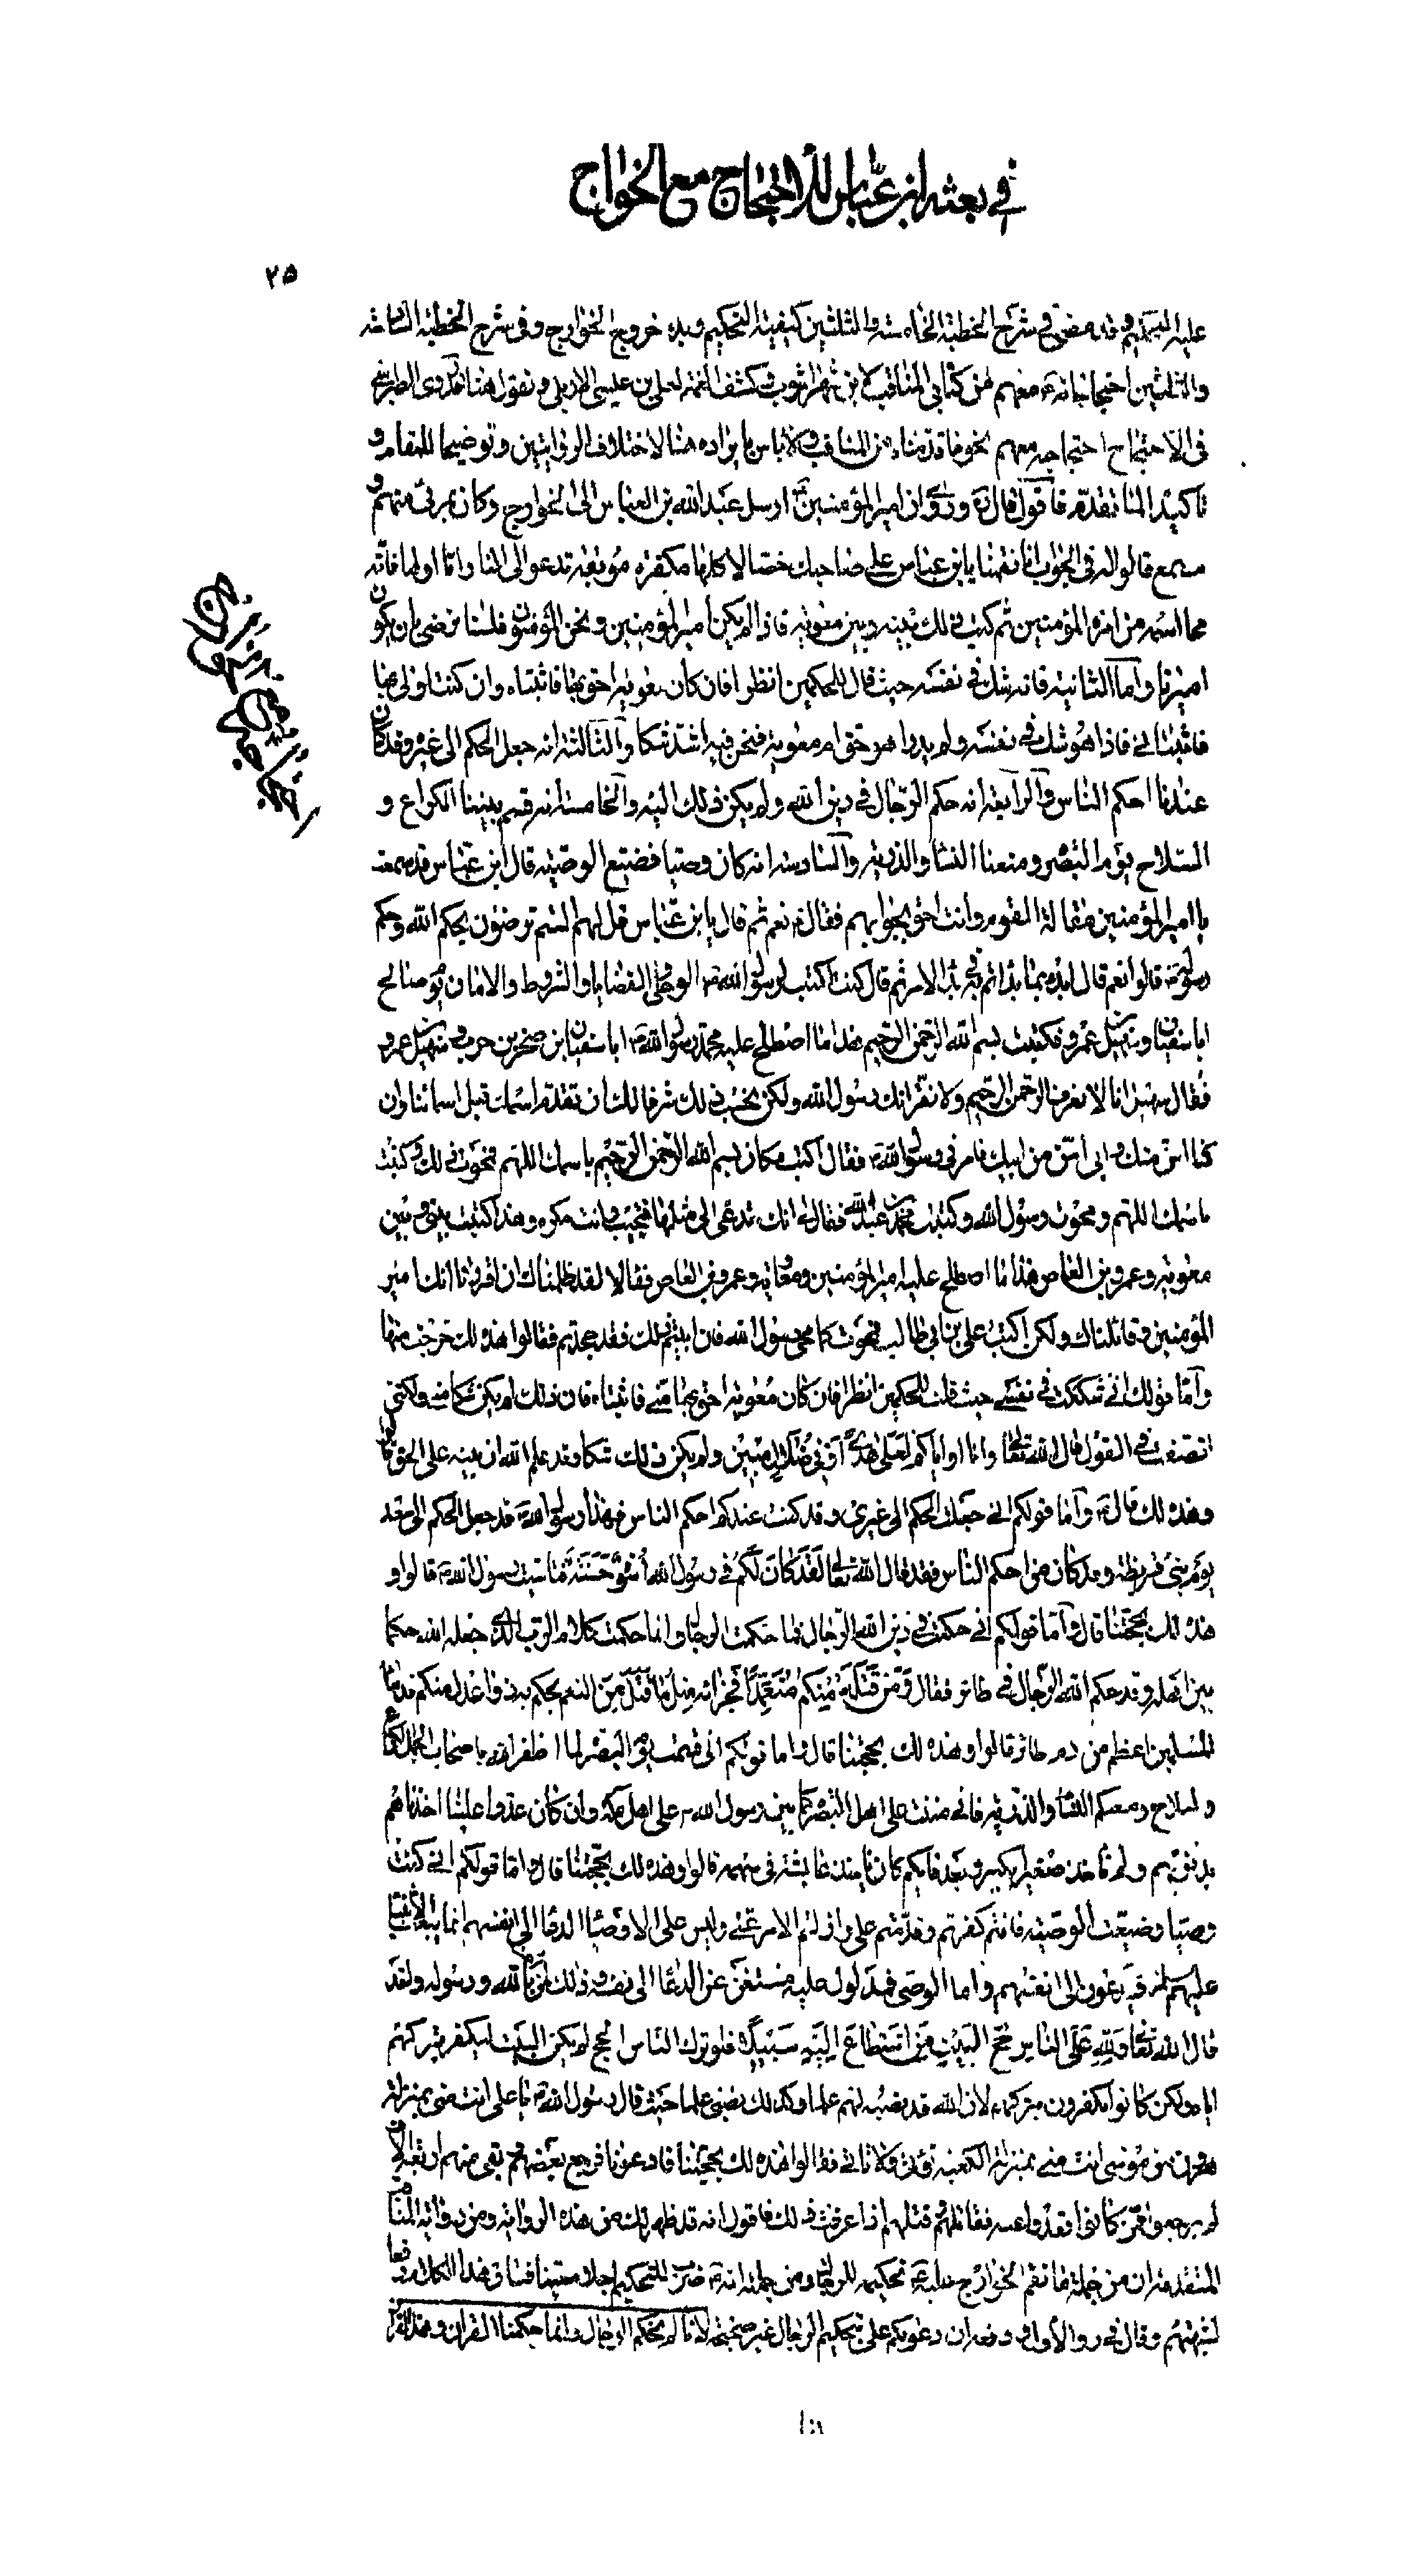 في بعثه ابن عباس للاحتجاج مع الخوارج
٢٥
عليه التحكيم وقد مضى في شرح الخطبة الخامسة والثلثين كيفية التحكيم وبدء خروج الخوارج وفى شرح الخطبة السادسة
والثلثين احتجاجاته ع معهم من كتابي المناقب لابن شهر اشوب وكشف الغمة لعلي بن عيسى الاربلي ونقول هنا قد روى الطبرسي
في الاحتجاج احتجاجه معهم بنحو ما قدمناه من المناقب ولا باس بايراده هنا لاختلاف الروايتين وتوضيحا للمقام و
تاكيدا لما تقدم فاقول قال ره وروى ان امير المؤمنين ع ارسل عبد الله بن العباس الى الخوارج وكان بمرئى منهم و
مسمع قالوا له في الجواب انا نقمنا يا بن عباس على صاحبك خصالا كلها مكفرة موبقة تدعو الى النار اما اولها فانه
محا اسمه من امرة المؤمنين ثم كتب ذلك بينه وبين معوية فاذا لم يكن امير المؤمنين ونحن المؤمنون فلسنا نرضى بان يكون
اميرنا واما الثانية فانه شك في نفسه حيث قال للحكمين انظرا فان كان معوية احق بها فاثبتاه وان كنت اولى بها
فاثبتاني فاذا هو شك في نفسه ولم يدر اهو احق ام معوية فنحن فيه اشد شكا والثالثة انه جعل الحكم الى غيره وقد كان
عندنا احكم الناس والرابعة انه حكم الرجال في دين الله ولم يكن ذلك اليه والخامسة انه قسم بيننا الكراع و
السلاح يوم البصرة ومنعنا النساء والذرية والسادسة انه كان وصيا فضيع الوصية قال ابن عباس قد سمعت
يا امير المؤمنين مقالة القوم وانت احق بجوابهم فقال ع نعم ثم قال يا بن عباس قل لهم الستم ترضون بحكم الله وحكم
رسوله ص قالوا نعم قال ابدء بما بدأتم به في بدء الامر ثم قال كنت اكتب لرسول الله ص الوحي والقضايا والشروط والامان يوم صالح
ابا سفيان وسهيل بن عمرو فكتبت بسم الله الرحمن الرحيم هذا ما اصطلح عليه محمد رسول الله ص ابا سفيان بن صخر بن حرب وسهيل بن عمرو
فقال سهيل انا لا نعرف الرحمن الرحيم ولا نقر انك رسول الله ولكن نحسب ذلك شرفا لك ان تقدم اسمك قبل اسمائنا وان
كنا اسن منك وابي اسن من ابيك فامرني رسول الله ص فقال اكتب مكان بسم الله الرحمن الرحيم باسمك اللهم فمحوت ذلك وكتبت
باسمك اللهم ومحوت رسول الله وكتبت محمد بن عبد الله فقال لي انك تدعى الى مثلها فتجيب وانت مكره وهذا كتبت بيني وبين
معوية وعمرو بن العاص هذا ما اصطلح عليه امير المؤمنين ومعاوية وعمرو بن العاص فقالا لقد ظلمناك ان اقررنا انك امير
المؤمنين وقاتلناك ولكن اكتب علي بن ابي طالب فمحوت كما محى رسول الله فان ابيتم ذلك فقد جحدتم فقالوا هذه لك خرجت منها
واما قولكم اني شككت في نفسي حيث قلت للحكمين انظرا فان كان معوية احق بها مني فاثبتاه فان ذلك لم يكن شكا مني ولكني
انصفت في القول قال الله تعالى وانا او اياكم لعلى هدى او في ضلال مبين ولم يكن ذلك شكا وقد علم الله ان نبيه على الحق قالوا
وهذه لك قال ع واما قولكم اني جعلت الحكم الى غيري وقد كنت عندكم احكم الناس فهذا رسول الله ص قد جعل الحكم الى سعد
يوم بني قريظة وقد كان من احكم الناس فقد قال الله تعالى لقد كان لكم في رسول الله اسوة حسنة فتاسيت برسول الله ص قالوا و
هذه لك بحجتنا قال واما قولكم اني حكمت في دين الله الرجال فما حكمت الرجال وانما حكمت كلام الرب الذي جعله الله حكما
بين اهله وقد حكم الله الرجال في طائر فقال ومن قتله منكم متعمدا فجزاء مثل ما قتل من النعم يحكم به ذوا عدل منكم فدماء
المسلمين اعظم من دم طائر قالوا وهذه لك بحجتنا قال واما قولكم اني قسمت يوم البصرة لما اظفرني الله باصحاب الجمل الكراع
والسلاح ومنعتكم النساء والذرية فاني مننت على اهل البصرة كما من رسول الله ص على اهل مكة وان كان عدوا علينا اخذناهم
بذنوبهم ولم ناخذ صغيرا بكبير وبعد فايكم كان ياخذ عايشة في سهمه قالوا وهذه لك بحجتنا قال واما قولكم اني كنت
وصيا وضيعت الوصية فانتم كفرتم وقدمتم علي وازلتم الامر عني وليس على الاوصياء الدعاء الى انفسهم انما يبعث الله الانبياء
عليهم السلام فيدعون الى انفسهم واما الوصي فمدلول عليه مستغن عن الدعاء الى نفسه وذلك لمن آمن بالله ورسوله ولقد
قال الله تعالى ولله على الناس حج البيت من استطاع اليه سبيلا فلو ترك الناس الحج لم يكن البيت ليكفر بتركهم
اياه ولكن كانوا يكفرون بتركهم لان الله قد نصبه لهم علما وكذلك نصبني علما حيث قال رسول الله ص يا علي انت مني بمنزلة
هرون من موسى انت مني بمنزلة الكعبة تؤتى ولا تاتي فقالوا هذه لك بحجتنا فاذعنوا فرجع بعضهم وبقى منهم اربعة الاف
لم يرجعوا ممن كانوا قعدوا عنه فقاتلهم فقتلهم اذا عرفت ذلك فاقول انه قد ظهر لك من هذه الرواية ومن رواية المناقب
المتقدمة ان من جملة ما نقم الخوارج عليه ع تحكيمه للرجال ومن جملته انه ع ضرب للتحكيم اجلا معينا فساق هذا الكلام دفعا
لشبهتهم وقال في رد الاولى ودفعه ان دعويكم علي تحكيم الرجال غير صحيحة لانا لم نحكم الرجال وانما حكمنا القرآن وهذا القرآن